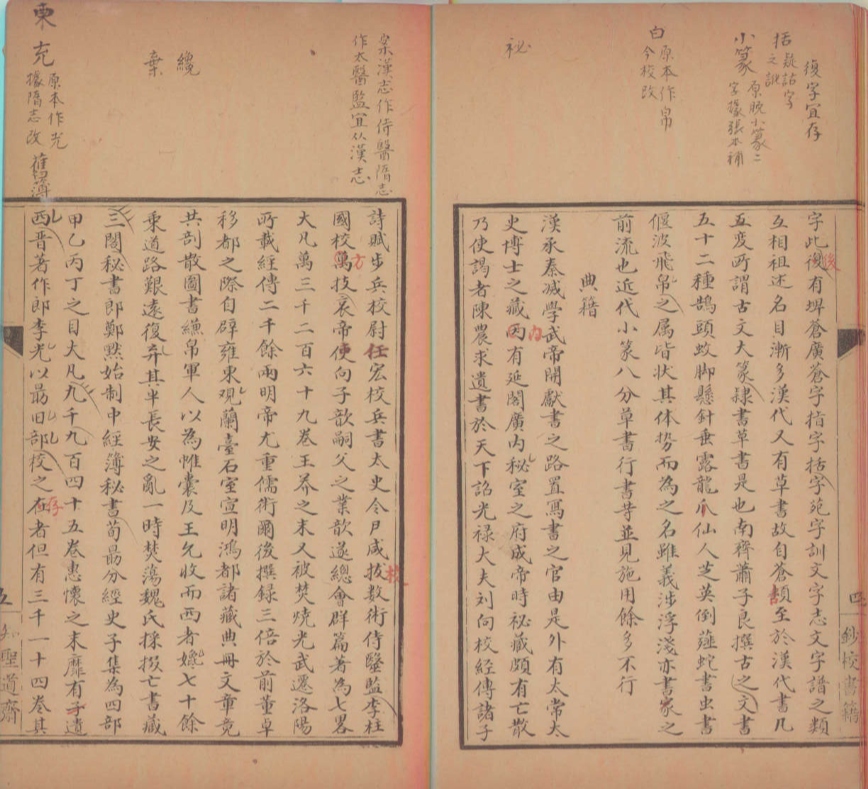 復字宜存
括疑詁字
之訛
小篆原脫小篆二
字據張本補
白原本作帛
今校改
祕
字此復有埤蒼廣蒼字指字括字苑字訓文字志文字譜之類
後
互相祖述名目漸多漢代又有草書故自蒼頡至於漢代書凡
五變所謂古文大篆隸書草書是也南齊蕭子良撰古之文書
五十二種鵠頭蚊脚懸針垂露龍爪仙人芝英倒薤蛇書虫書
偃波飛帛之属皆状其体势而為之名雖義涉浮淺亦書家之
前流也近代小篆八分草書行書等並見施用餘多不行
典籍
漢承秦滅學武帝開獻書之路置寫書之官由是外有太常太
史博士之藏因有延閣廣内秘室之府成帝時祕藏頗有亡散
内
乃使謁者陳農求遺書於天下詔光禄大夫刘向校經傳諸子
四
鈔校書籍
案漢志作侍醫隋志
作太醫監宜从漢志
纔
棄
栗
充原本作光
據隋志改
舊簿
詩賦步兵校尉任宏校兵書太史令尹咸拔數術侍醫監李柱
校
國校萬技哀帝使向子歆嗣父之業歆遂總會群篇著為七畧
方
大凡萬三千二百六十九卷王莽之末又被焚燒光武遷洛陽
所載經傳二千餘兩明帝尤重儒術爾後撰録三倍於前董卓
移都之際自辟雍東觀蘭臺石室宣明鴻都諸藏典冊文章競
共剖散圖書縑帛軍人以為帷囊及王允收而西者纔七十餘
乗道路艱遠復弃其半長安之亂一時焚蕩魏氏採掇亡書藏
三閣秘書郎鄭黙始制中經簿秘書荀勗分經史子集為四部
甲乙丙丁之目大凡九千九百四十五卷惠懷之末靡有孑遺
西晋著作郎李光以勗旧部校之在者但有三千一十四卷其
存
五
知聖道齋